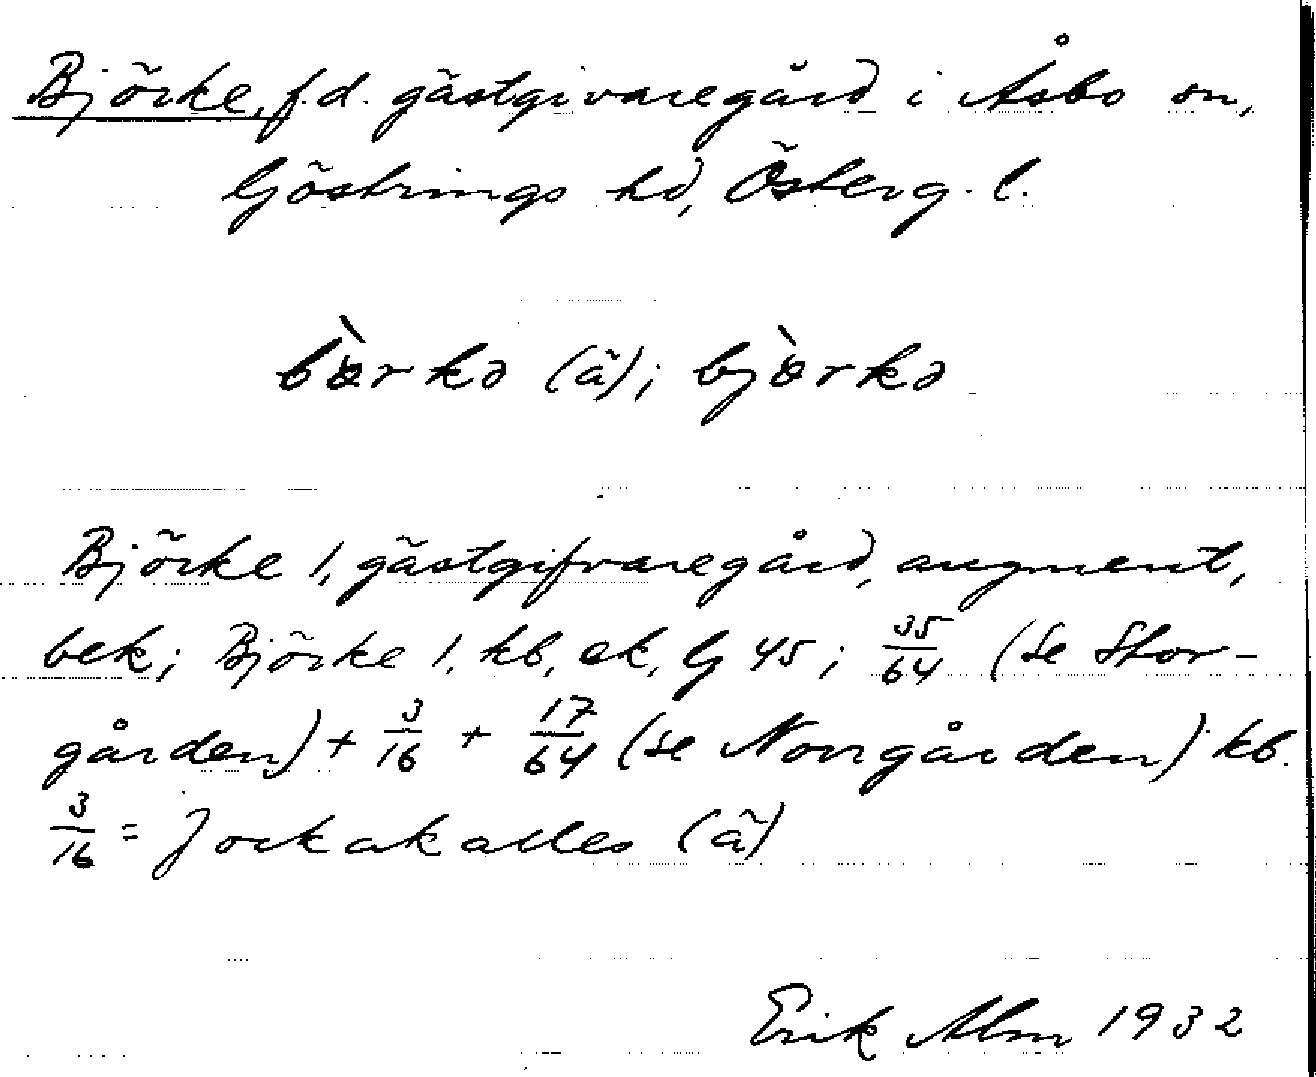 Björke, f.d. gästgivaregård i Åsbo sn,
Göstrings hd, Österg. l.
bœ̀rkə (ä); bjœ̀rkə
Björke 1, gästgifvaregård, augment,
bek; Björke 1, kb, ek, Gj 45; 35/64 (se Stor-
gården) + 3/16 + 17/64 (se Norrgården) kb.
3/16 = Jockakalles (ä)
Erik Alm 1932